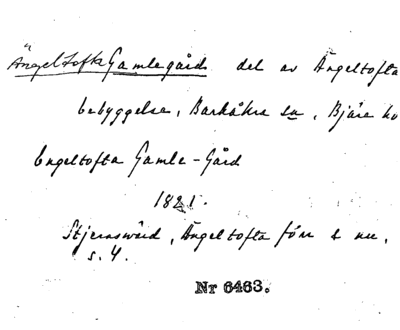 Ängeltofta Gamlegård del av Ängeltofta
bebyggelse, Barkåkra sn, Bjäre hd
Engeltofta Gamle-Gård
1821.
Stjernswärd, Ängeltofta förr & nu,
s. 4.
Nr 6463.